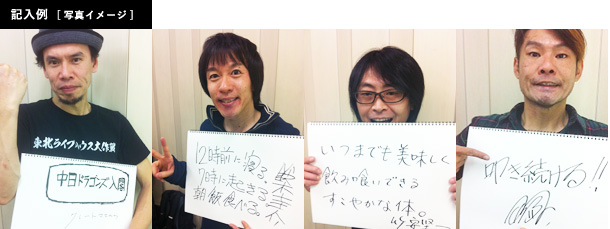 記入例 [写真イメージ]
東北ライブハウス大作戦
中日ドラゴンズ入団
12時前に寝る
7時に起きる
朝飯食べる。
いつまでも美味しく
飲み食いできる
すこやかな体。
叩き続ける!!